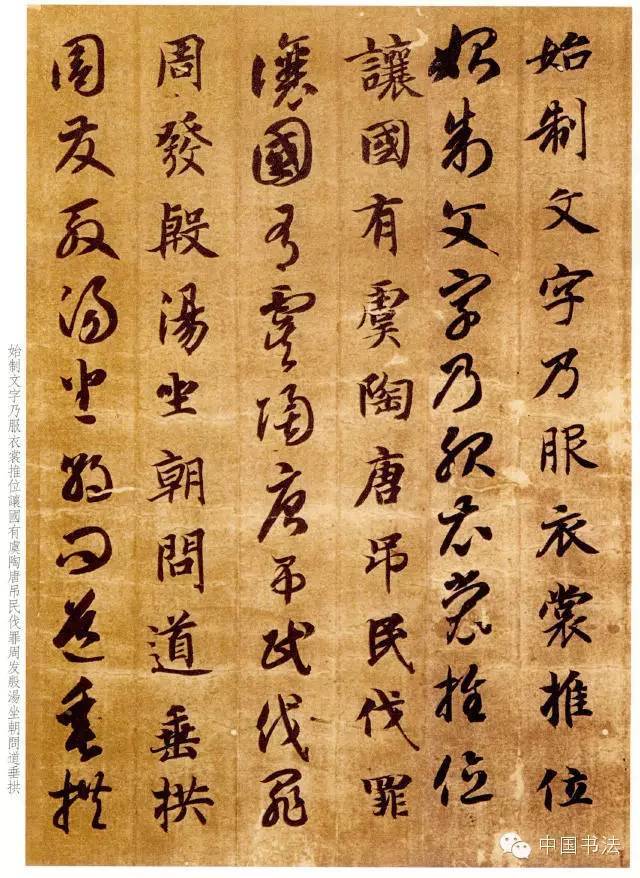 始制文字乃服衣裳推位
始制文字乃服衣裳推位
讓國有虞陶唐吊民伐罪
讓國有虞陶唐吊民伐罪
周發殷湯坐朝問道垂拱
周發殷湯坐朝問道垂拱
始制文字乃服衣裳推位讓國有虞陶唐吊民伐罪周发殷湯坐朝問道垂拱
中国书法